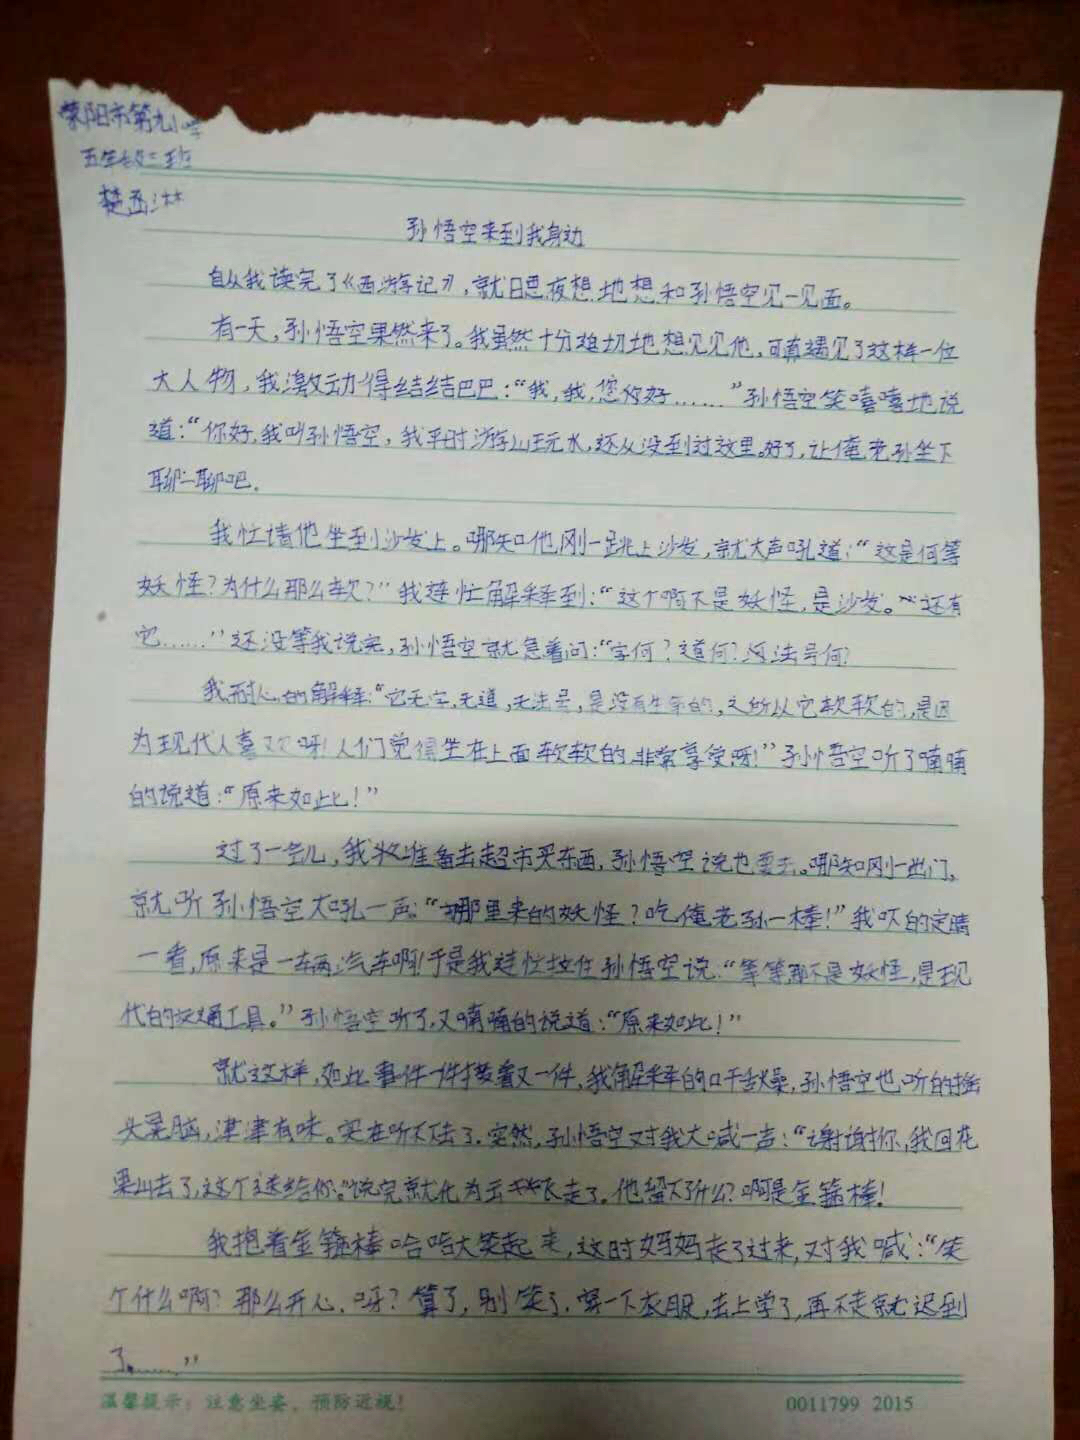 荥阳市第九小学
五年级二班
楚丞淋
孙悟空来到我身边
自从我读完了《西游记》,就日思夜想地想和孙悟空见一见面。
有一天,孙悟空果然来了。我虽然十分迫切地想见见他,可真遇见了这样一位
大人物,我激动得结结巴巴:“我,我,您你好……”孙悟空笑嘻嘻地说
道:“你好,我叫孙悟空,我平时游山玩水,还从没到过这里。好了,让俺老孙坐下
聊一聊吧.
我忙请他坐到沙发上。哪知他刚一跳上沙发,就大声吼道:“这是何等
妖怪?为什么那么软?”我连忙解释到:“这个啊不是妖怪,是沙发。”“还有
它……”还没等我说完,孙悟空就急着问:“字何?道何?法号何?
我耐心的解释:“它无字,无道,无法号,是没有生命的,之所以它软软的,是因
为现代人喜欢呀!人们觉得坐在上面软软的,非常享受呀!”孙悟空听了喃喃
的说道:“原来如此!”
过了一会儿,我准备去超市买东西,孙悟空说也要去。哪知刚一出门,
就听孙悟空大吼一声:“哪里来的妖怪?吃俺老孙一棒!”我吓的定睛
一看,原来是一辆汽车啊!于是我连忙拉住孙悟空说:“等等,那不是妖怪,是现
代的交通工具。”孙悟空听了,又喃喃的说道:“原来如此!”
就这样,如此事件一件接着又一件,我解释的口干舌燥,孙悟空也听的摇
头晃脑,津津有味。实在听不下去了.突然,孙悟空对我大喊一声:“谢谢你,我回花
果山去了,这个送给你。”说完就化为云飞走了。他留下了什么?啊是金箍棒!
我抱着金箍棒哈哈大笑起来,这时妈妈走了过来,对我喊:“笑
个什么啊?那么开心.呀?算了,别笑了.穿一下衣服,去上学了,再不走就迟到
了……”
温馨提示:注意坐姿,预防近视!
0011799 2015